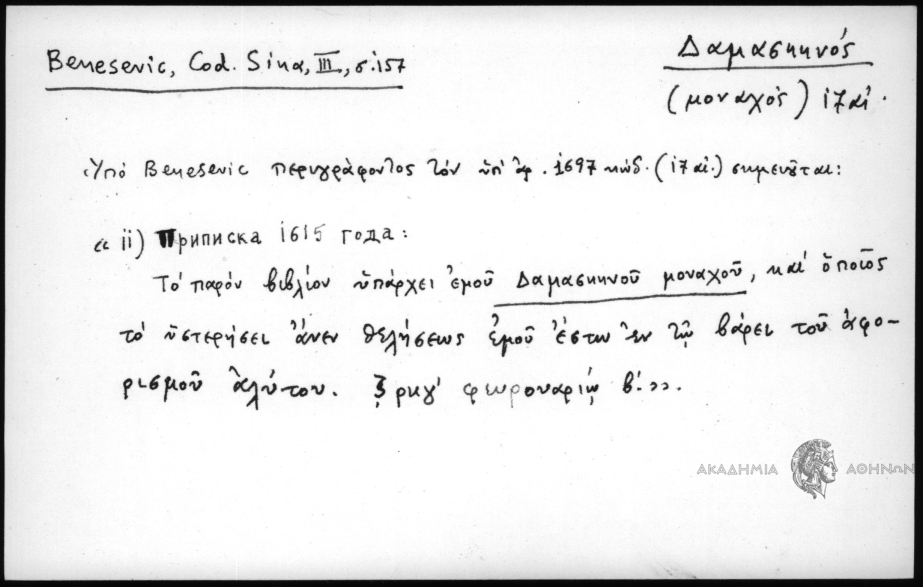 Benesevic, Cod. Sina, III, σ. 157
Δαμασκηνός
(μοναχὸς) ιζ αἰ.
Ὑπό Benesevic περιγράφοντος τόν ὑπ' ἀρ. 1697 κώδ. (ιζ αἰ.) σημειοῦται:
« ii) Приписка 1615 года:
Τό παρόν βιβλίον ὑπάρχει ἐμοῦ Δαμασκηνοῦ μοναχοῦ, καί ὁποῖος
τό ὑστερήσει ἄνεν θελήσεως ἐμοῦ ἔστω ἐν τῷ βάρει τοῦ ἀφο-
ρισμοῦ ἀλύτου. ζρκγ' φευροναρίῳ β'.»
ΑΚΑΔΗΜΙΑ ΑΘΗΝΩΝ